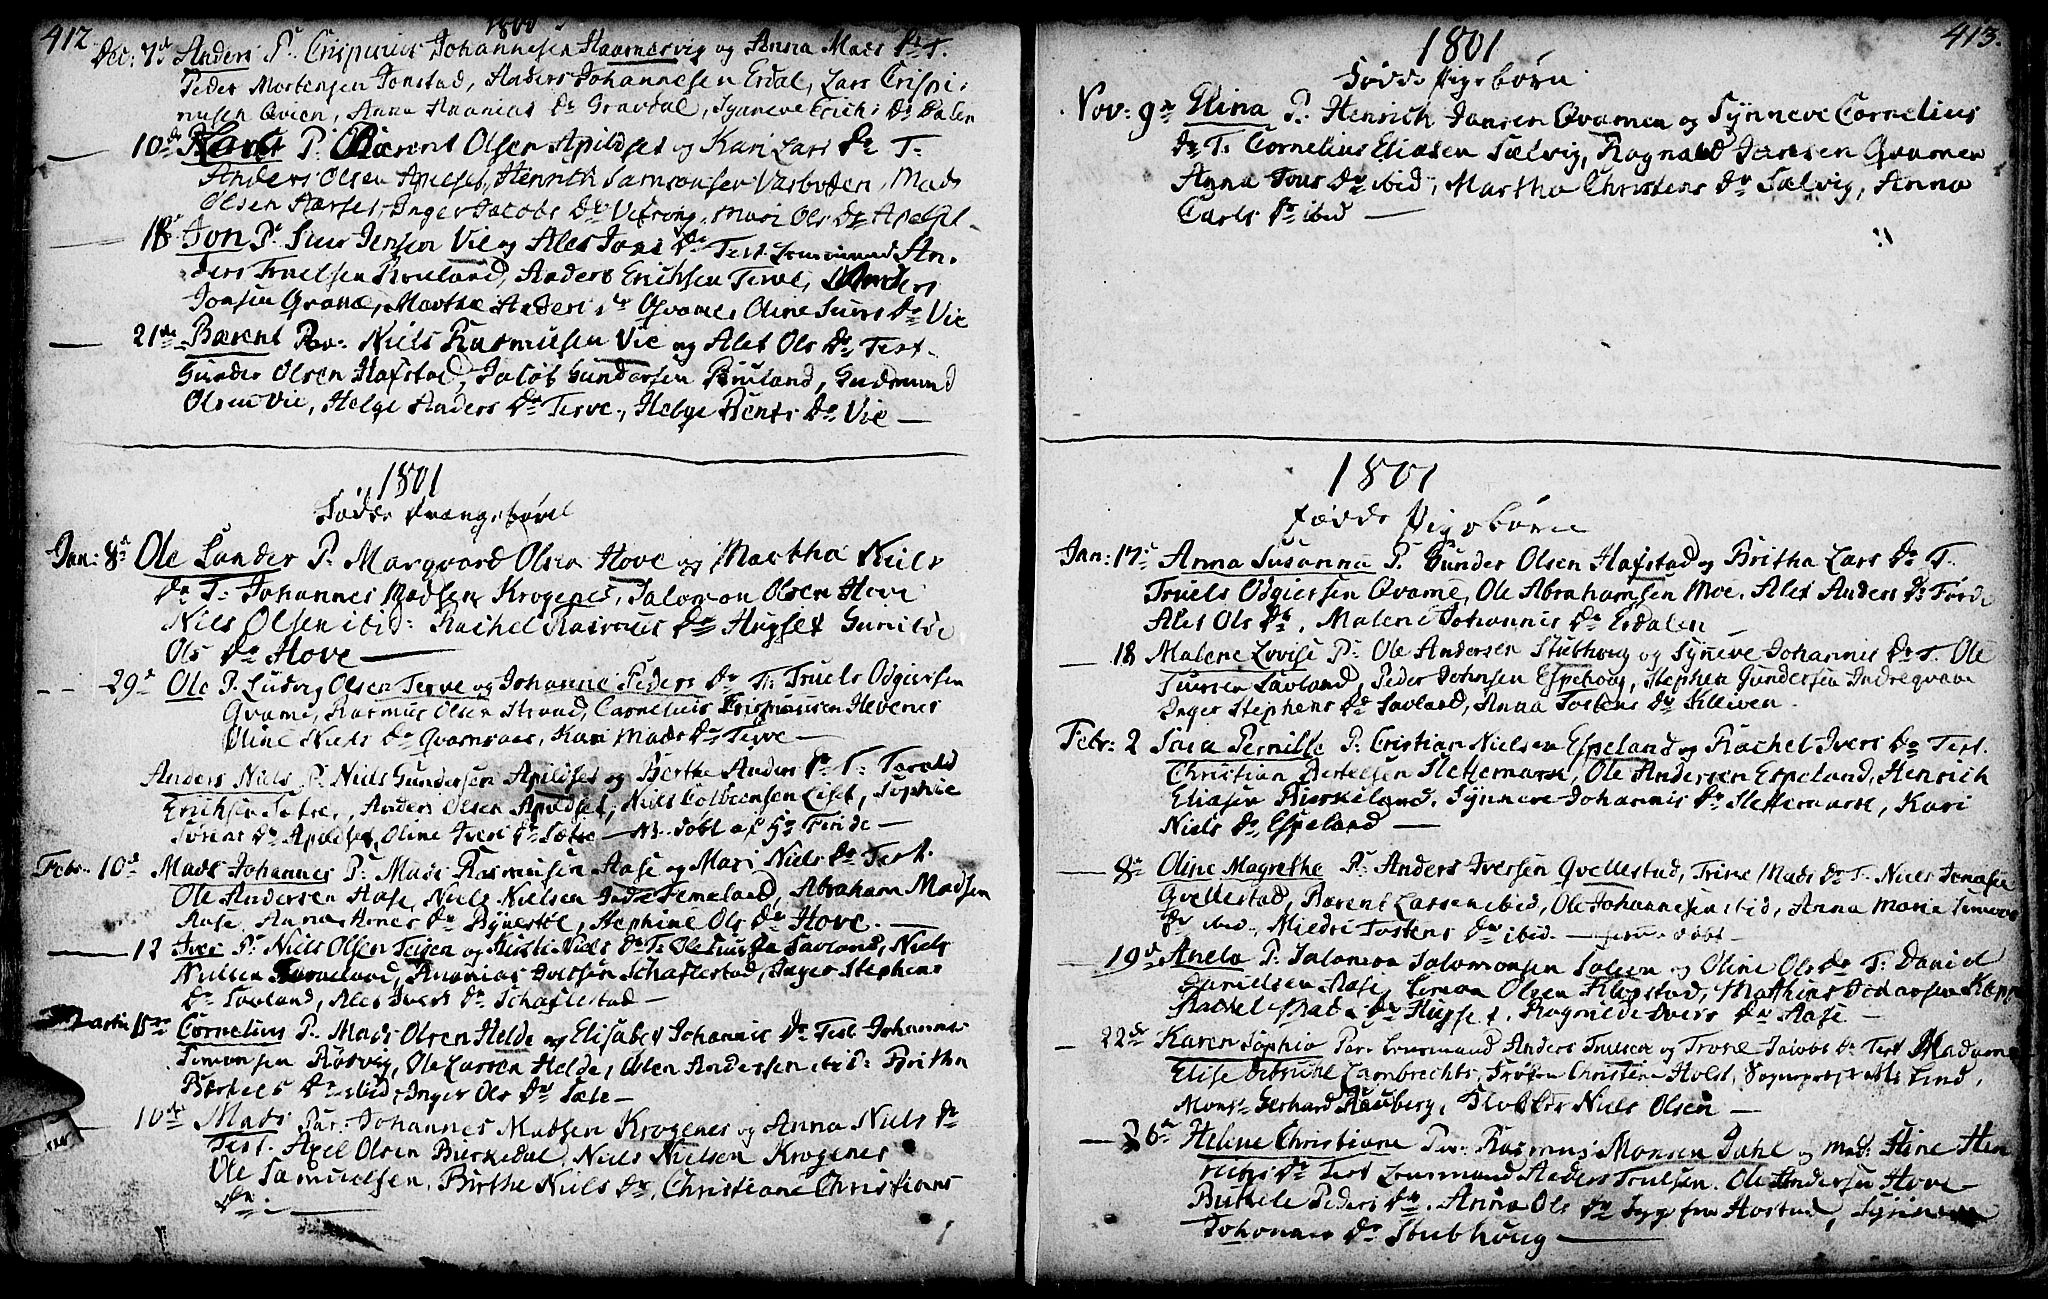 412.
1801
Dec: 7d Anders Pr Crispinus Johannesen Haarnæsvig og Anna Mads Dr T.
Peder Mortensen Jonstad, Anders Johannesen Erdal, Lars Crispi:
nusen Qvien, Anna Ananias Dr Gravdal, Synneve Erich: Dr Dalen
10d Lars P: Bærent Olsen Apildset og Kari Lars Dr T:
Anders Olsen Apelset, Henrich Samsonsen Varboden, Mads
Olsen Aarset, Inger Jacobs Dr Mari Ols Dr Apelset
18 Jon Pr Siur Jensen Vie og Ales Jons Dr Test. Lensmand An-
ders Truelsen Bruland, Anders Erichsen Terve, Anders
Jonsen Qvame, Marthe Anders Dr Qvame, Oline Siurs Dr Vie
21de Bærent Par: Niels Rasmusen Vie og Alet Ols Dr Test.
Gunder Olsen Hafstad, Jacob Gundersen Bruland, Gudmund
Olsen Vie, Helge Anders Dr Terve, Helge Bents Dr Vie —
1801
Fødde Drængebørn
Jan: 8d Ole Lunder P. Marqvard Olsen Hove og Martha Niels
Dr T: Johannes Madsen Krogenes, Salomon Olsen Hove
Niels Olsen ibid: Rachel Rasmus Dr Hugset Gunilde
Ols Dr Hove —
29d Ole P. Ludvig Olsen Terve og Johanne Peders Dr T: Truels Odgiersen
Qvame, Rasmus Olsen Strand, Cornelius Crispinusen Hevenes
Oline Niels Dr Qvamsaas, Kari Mads Dr Terve —
Anders Niels P. Niels Gundersen Apildset og Berthe Anders Dr T: Torald
Erichsen Sætre, Anders Olsen Apildset, Niels Colbensen Liset, Sophie
Sørens Dr Apildset, Oline Ivers Dr Sætre — NB. døbt af Hr
Febr. 10d Mads Johannes P: Mads Rasmusen Aase og Mari Niels Dr Test.
Ole Andersen Aase, Niels Nielsen Indre Femeland, Abraham Madsen
Aase, Anna Arnes Dr Stephine Ols Dr Hove. —
12 Iver P: Niels Olsen Teigen og Niels Dr T: Ole Siursen Savland, Niels
Nielsen Ananias Iversen Schaflestad, Inger Stephens
Dr Savland, Ales Ivers Dr Schaflestad —
Martii 15 Cornelius P. Mads Olsen Helde og Elisabet Johannis Dr Test Johannes
Simonsen Rørvig, Ole Larsen Helde, Olen Andersen ibid: Britha
Dr ibid, Inger Ols Dr Sæle —
10de Mads Par: Johannes Madsen Krogenes og Anna Niels Dr
Test. Axel Olsen Birkedal, Niels Nielsen Krogenes
Ole Samuelsen, Birthe Niels Dr, Christiane Christians
Dr. —
413.
1801
Fødde Pigebørn
Nov: 9de Stina P. Henrich Jansen Qvamen og Synneve Cornelius
Dr T. Cornelius Eliasen Sælvig, Ragnald Jansen Qvamen
Anna Tous Dr ibid, Martha Christens Dr Sælvig, Anna
Carls Dr ibid —
1801
Fødde Pigebørn
Jan: 17de Anna Susanna P. Gunder Olsen Hafstad og Britha Lars Dr T.
Truels Odgiersen Qvame, Ole Abrahamsen Moe, Alet Anders Dr Førde
Ales Ols Dr, Malene Johannis Dr Erdalen
18 Malene Lovise P: Ole Andersen Stubhoug og Syneve Johannis Dr T. Ole
Siursen Savland, Peder Johnsen Espehoug, Stephen Gundersen Indreqvame
Inger Stephens Dr Savland, Anna Tostens Dr Kleiven.
Febr: 2 Pernille P. Cristian Nielsen Espeland og Rachel Ivers Dr Test.
Christian Bertelsen Slettemark, Ole Andersen Espeland, Henrich
Eliasen Birkeland, Synneve Johannis Dr Slettemark, Kari
Niels Dr Espeland —
8de Oline Magrethe P. Anders Iversen Qvellestad, Trine Mads Dr T. Niels Jonasen
Qvellestad, Bærent Larsen ibid, Ole Johannesen ibid, Anna Marie Simons
Dr ibid, Tostens Dr ibid. — døbt —
19d Anela P. Salomon Salomonsen Solsen og Oline Ols Dr T: David
Danielsen Aase, Simon Olsen Klopstad, Mathias Didriksen
Rachel Mads Dr Hugset, Ragnilde Ivers Dr Aase —
22de Karen Sophia Par. Lensmand Anders Trulsen og Trone Jacobs Dr Test Madame
Elise Lambrechts, Frøken Christine Holst, Lind,
Mons: Gerhard Rauberg, Klokker Niels Olsen —
26d Helene Christiane Par: Rasmus Monsen Dahl og Mad: Stine Hen
richs Dr Test Lensmand Anders Truelsen. Ole Andersen Hove
Peders Dr. Anna Ols Dr fra Hostad, Synneve
Johannes Dr Stubhoug —